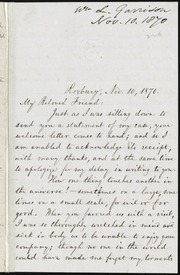 Wm L. Garrison
Nov. 10. 1870
Roxbury, Nov. 10, 1870.
My Beloved Friend:
Just as I was sitting down
to send you a statement of my case, your
welcome letter comes to hand; and so I
am enabled to acknowledge its receipt,
with many thanks, and at the same time
to apologize for my delay in writing to you.
How one thing touches another in
the universe! – sometimes on a large, some-
times on a small scale, for evil or for
good. When you favored us with a visit,
I was so thoroughly wretched in mind and
sick in body as to be unable to enjoy your
company; though no one in the world
could have made me forget my torments